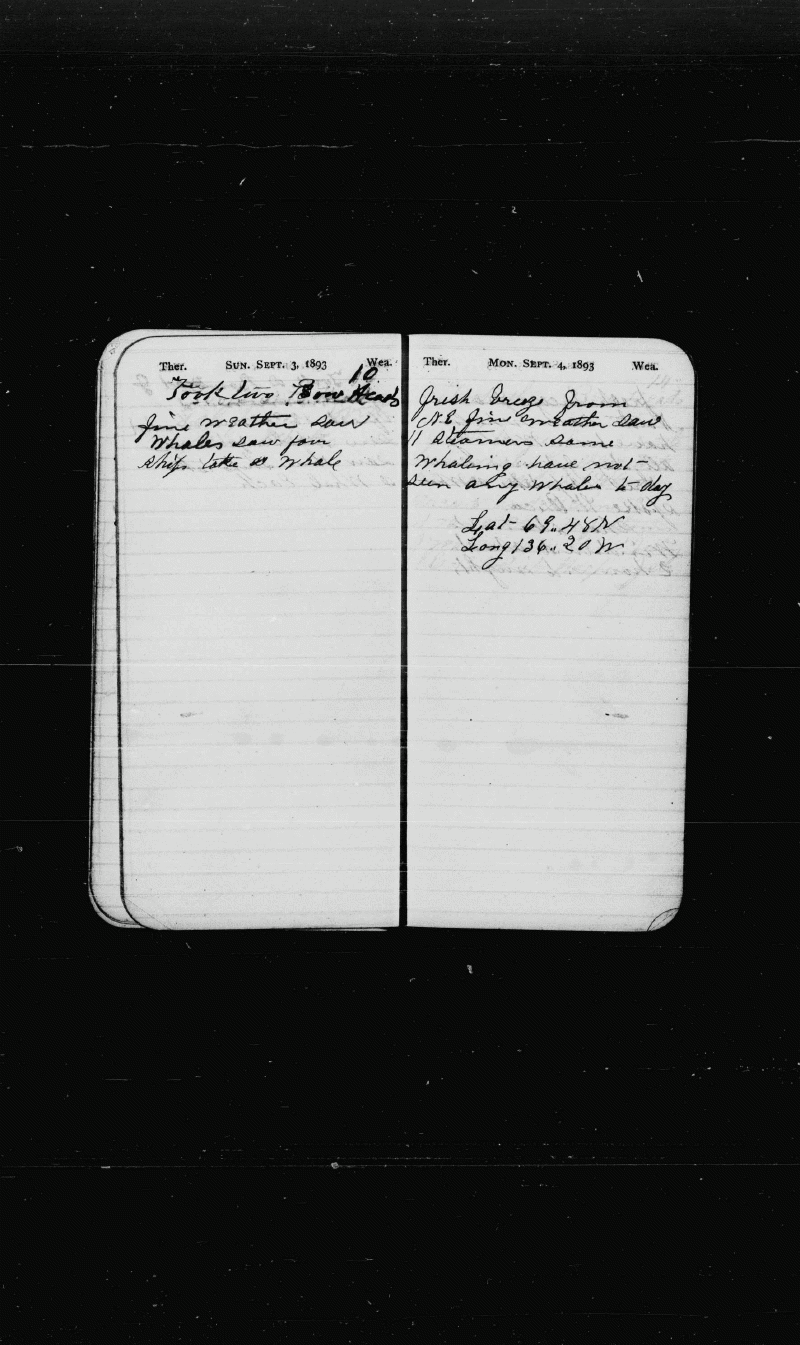 Ther. SUN. SEPT. 3, 1893 Wea.
10
Took two Bow Heads
fine weather saw
Whales saw four
ships take a Whale
Ther. MON. SEPT. 4, 1893 Wea.
fresh breeze from
N.E. fine weather saw
11 steamers some
Whaleing have not
seen any Whales to day
Lat 69..48 N
Long 136..20 W